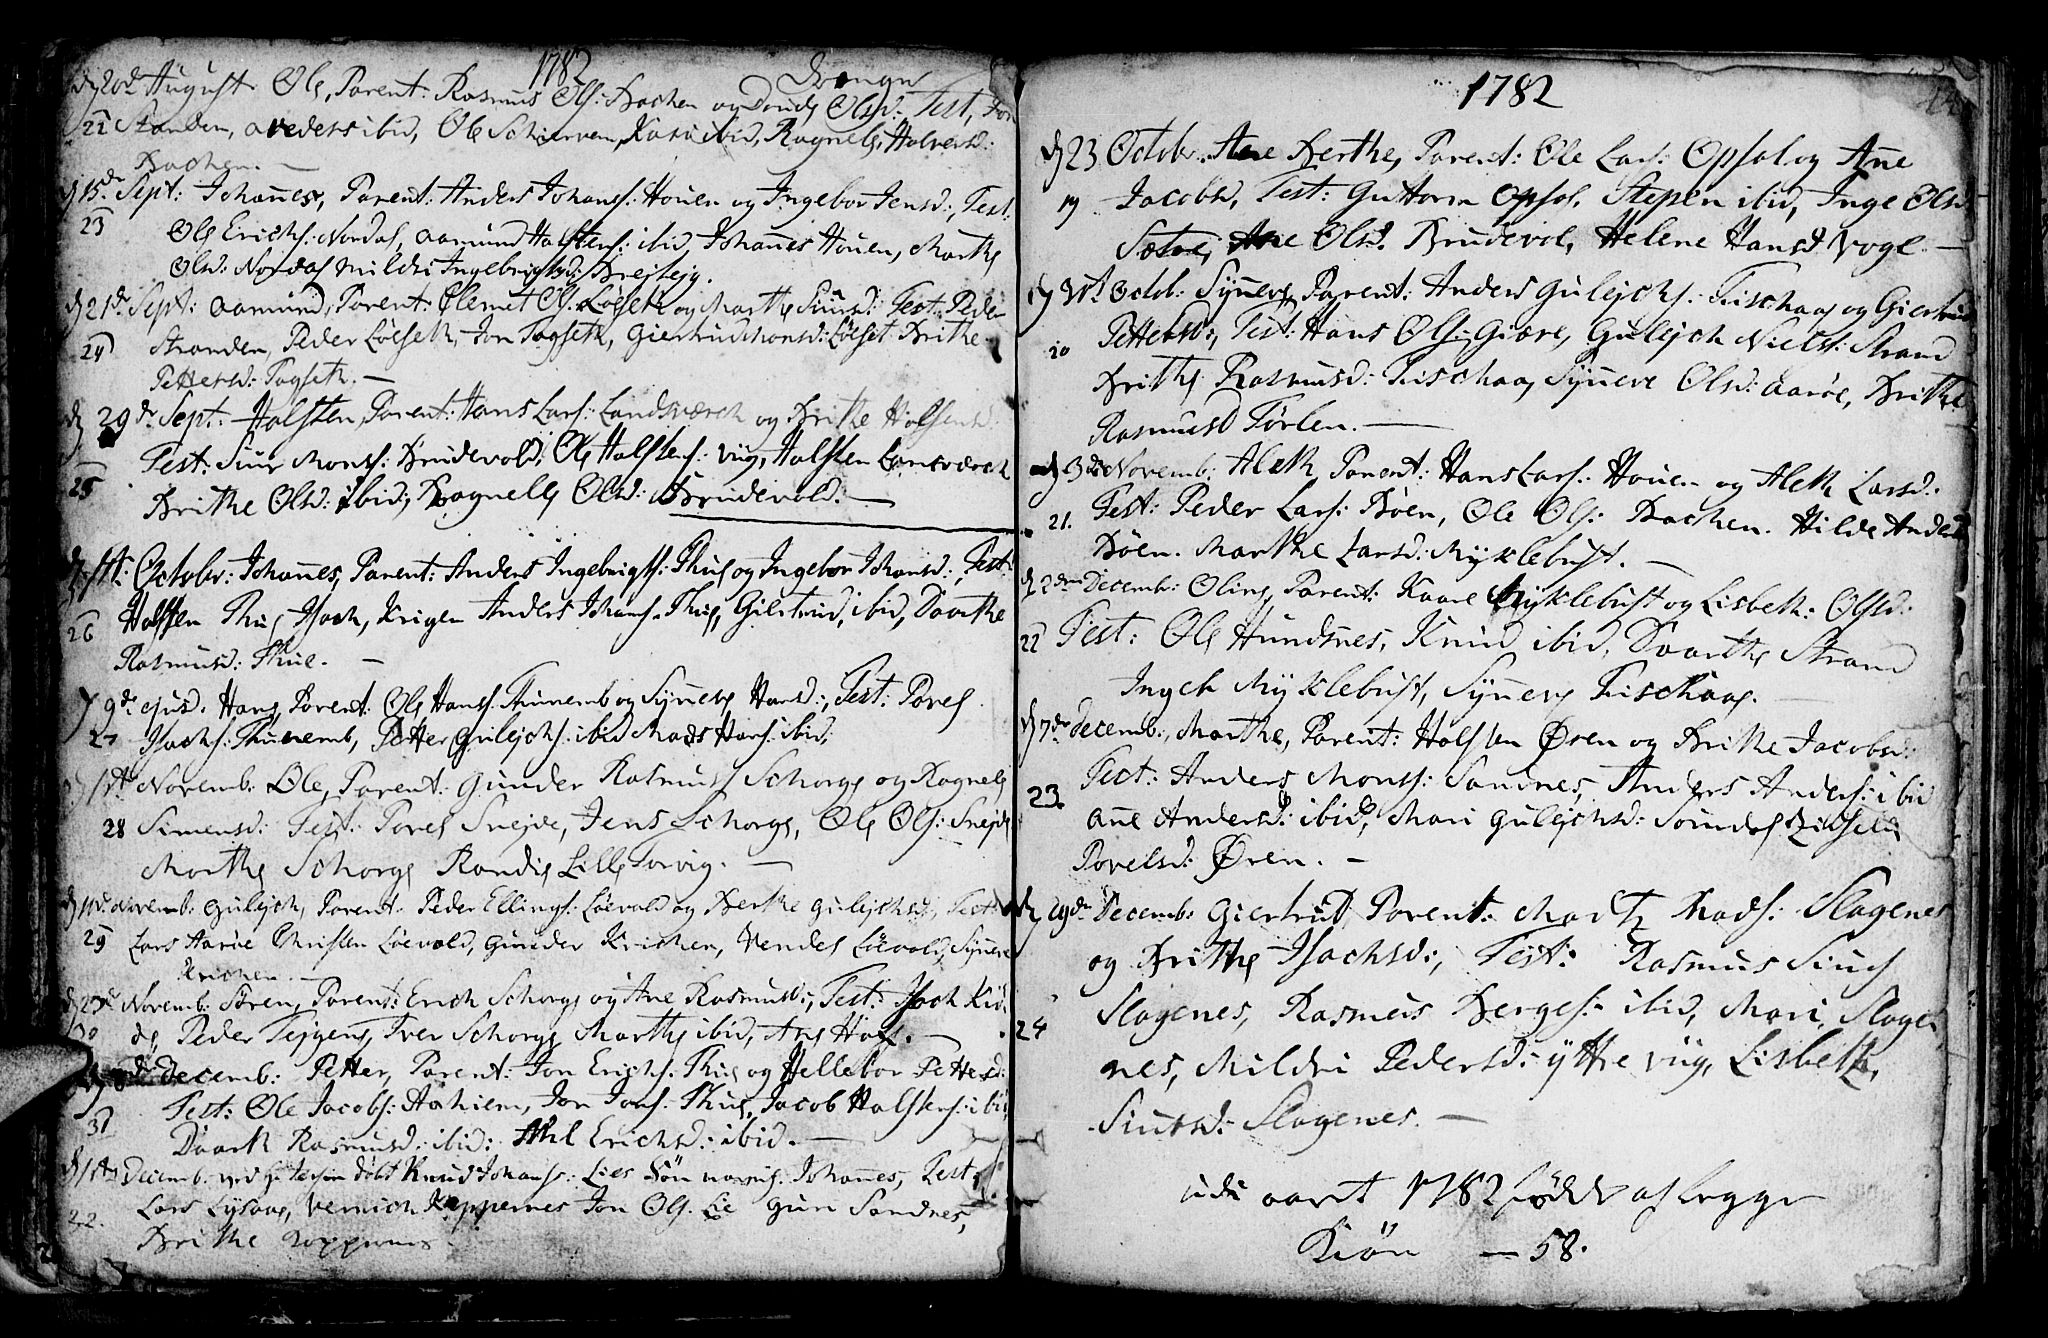 1782
Drenge
d 20d August Ole, Parent: Rasmus Ols: Bachen og Dordi Olsd: Test, Jon
22 Standen, Anders ibid, Ole Schierven, Kari ibid, Ragnele Halversd:
Bachen. —
d 15de Sept: Johanes, Parent: Anders Johans: Houen og Ingebor Jensd:, Test:
23 Ole Erichs: Nordal, Aamund Halstens: ibid, Johanes Houen, Marthe
Olsd: Nordal Mildri Ingebrigtsd: Brejtejg.
d 21de Sept: Aamund, Parent: Clemet Ols. Löeset og Marthe Siursd: Test: Peder
24 Stranden, Peder Löeseth, Jon Tagseth, Giertrud Monsd: Löeset Brithe
Pettersd: Tagseth. —
d 29de Sept: Halsten, Parent: Hans Lars: Landsværch og Brithe Halstensd:
Test: Siur Mons: Brudevold, Ole Halstens: Viig, Halsten Lansværch
25 Brithe Olsd: ibid, Ragnele Olsd: Brudevold. —
d 1ste: October: Johanes, Parent: Anders Ingebrigts: Thue og Ingebor Johansd:, Test:
26 Halsten Thue Isach, Krigen Anders Johans. Thue, Giertrud, ibid, Dorthe
Rasmusd: Thue. —
d 9de ejusd. Hans, Parent: Ole Hans: Thunemb og Synneve Hansd:, Test: Povel
27 Isachs: Thunemb, Petter Gulejchs: ibid Mads Hans: ibid,
d 1ste Novemb: Ole, Parent: Gunder Rasmus: Schorge og Ragnele
28 Simensd: Test: Povel Snejde, Jens Schorge, Ole Ols: Snejde
Marthe Schorge Randi Lille Torvig. —
d 10de Novemb: Gulejch, Parent: Peder Ellings: Löevold og Berthe Gulejchsd:, Test:
29 Lars Aaröe Christen Löevold, Gunder Krichen, Vendel Löevold, Synneve
Krichen. —
d 23de Novemb: Sören, Parent: Erich Schorge og Ane Rasmusd:, Test: Isach Kid
30 de, Peder Tejgens, Iver Schorge Marthe ibid, Ane Hole. —
d 8de Decemb: Petter, Parent: Jon Erichs: Thue og Hellebor Pettersd:
Test: Ole Jacobs: Aahiem, Jon Jons: Thue, Jacob Halstens: ibid
31 Doorth Rasmusd: ibid: Ahl Erichsd: ibid. —
d 1ste Decemb: döbt Knud Johans: Lies Sön navnl. Johanes, Test:
32. Lars Lysaag, Vernich Koppernes Jon Ols. Lie Guri Sandnes,
Brithe Koppernes
1782
d 23 Octobr. Ane Berthe, Parent: Ole Lars: Opsal og Ane
19 Jacobsd, Test: Guttorm Opsal, Stepen ibid, Inge Olsd
Sætre, Ane Olsd. Brudevol, Helene Hansd Vogl —
d Octob: Synneve Parent: Anders Gulejchs: Fischaag og Giertrud
20 Pettersd:, Test: Hans Ols: Giære, Gulejch Niels: Strand
Brithe Rasmusd: Fischaag Synneve Olsd: Aaröe, Brithe
RasmusdFörlen. —
d 3de Novemb: Aleth, Parent: Hans Lars: Houen og Aleth Larsd.
21. Test: Peder Lars: Böen, Ole Ols: Bachen. Hilde Andersd
Böen. Marthe Larsd: Myklebust. —
d 2den Decemb: Oline, Parent: Kaare Myklebust og Lisbeth: Olsd:
22 Test: Ole Hundsnes, Knud ibid, Doorthe Strand
Ingeb Myklebust, Synneve Fischaag. —
d 7de Decemb:, Marthe, Parent: Halsten Øren og Brithe Jacobsd:
23. Test: Anders Mons: Sandnes, Anders Anders: ibid
Ane Andersd: ibid, Mari Gulejchsd: Sordal
Povelsd: Øren. —
d 29de Decemb: Giertrut Parent: Mads: Slagenes
og Brithe Isachsd:, Test: Rasmus Siurs
24 Slagenes, Rasmus Berges: ibid, Mari, Slage
nes, Mildri Pedersd: Yttre Viig, Lisbeth,
Siursd: Slagenes. —
udi aaret 1782 födde af begge
Kiön — 58.